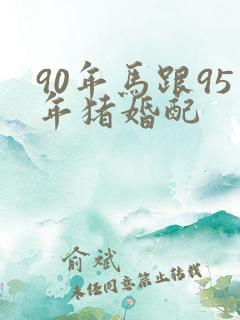 90年馬跟95
年猪婚配
俞斌
未任同意禁止转载